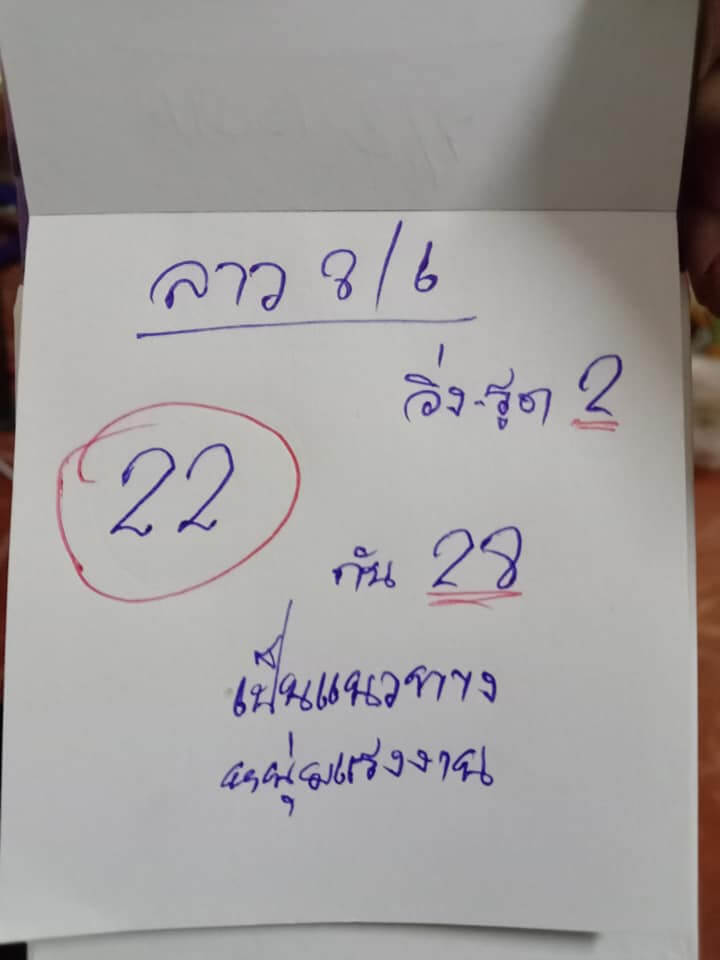 ลาว 8/6
วิ่ง-รูด 2
22
กัน 28
เป็นแนวทาง
หนุ่มแรงงาน